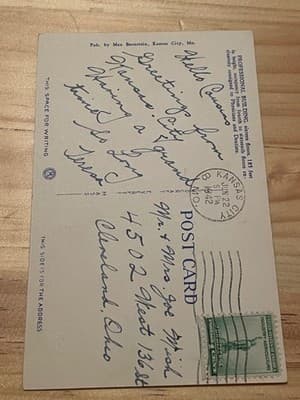 Pub. by Max Bernstein, Kansas City, Mo.
PROFESSIONAL BUILDING, eleven floors, 185 feet
in height,
Physicians and Dentists
Hello Cousins
Greetings from
Kansas City
Having a grand
time So Long
THIS SPACE FOR WRITING
KANSAS CITY, MO.
JUN 22
5 PM
1942
POST CARD
Mr. & Mrs Joe Mish
4502 West 136 St
Cleveland, Ohio
THIS SIDE IS FOR THE ADDRESS